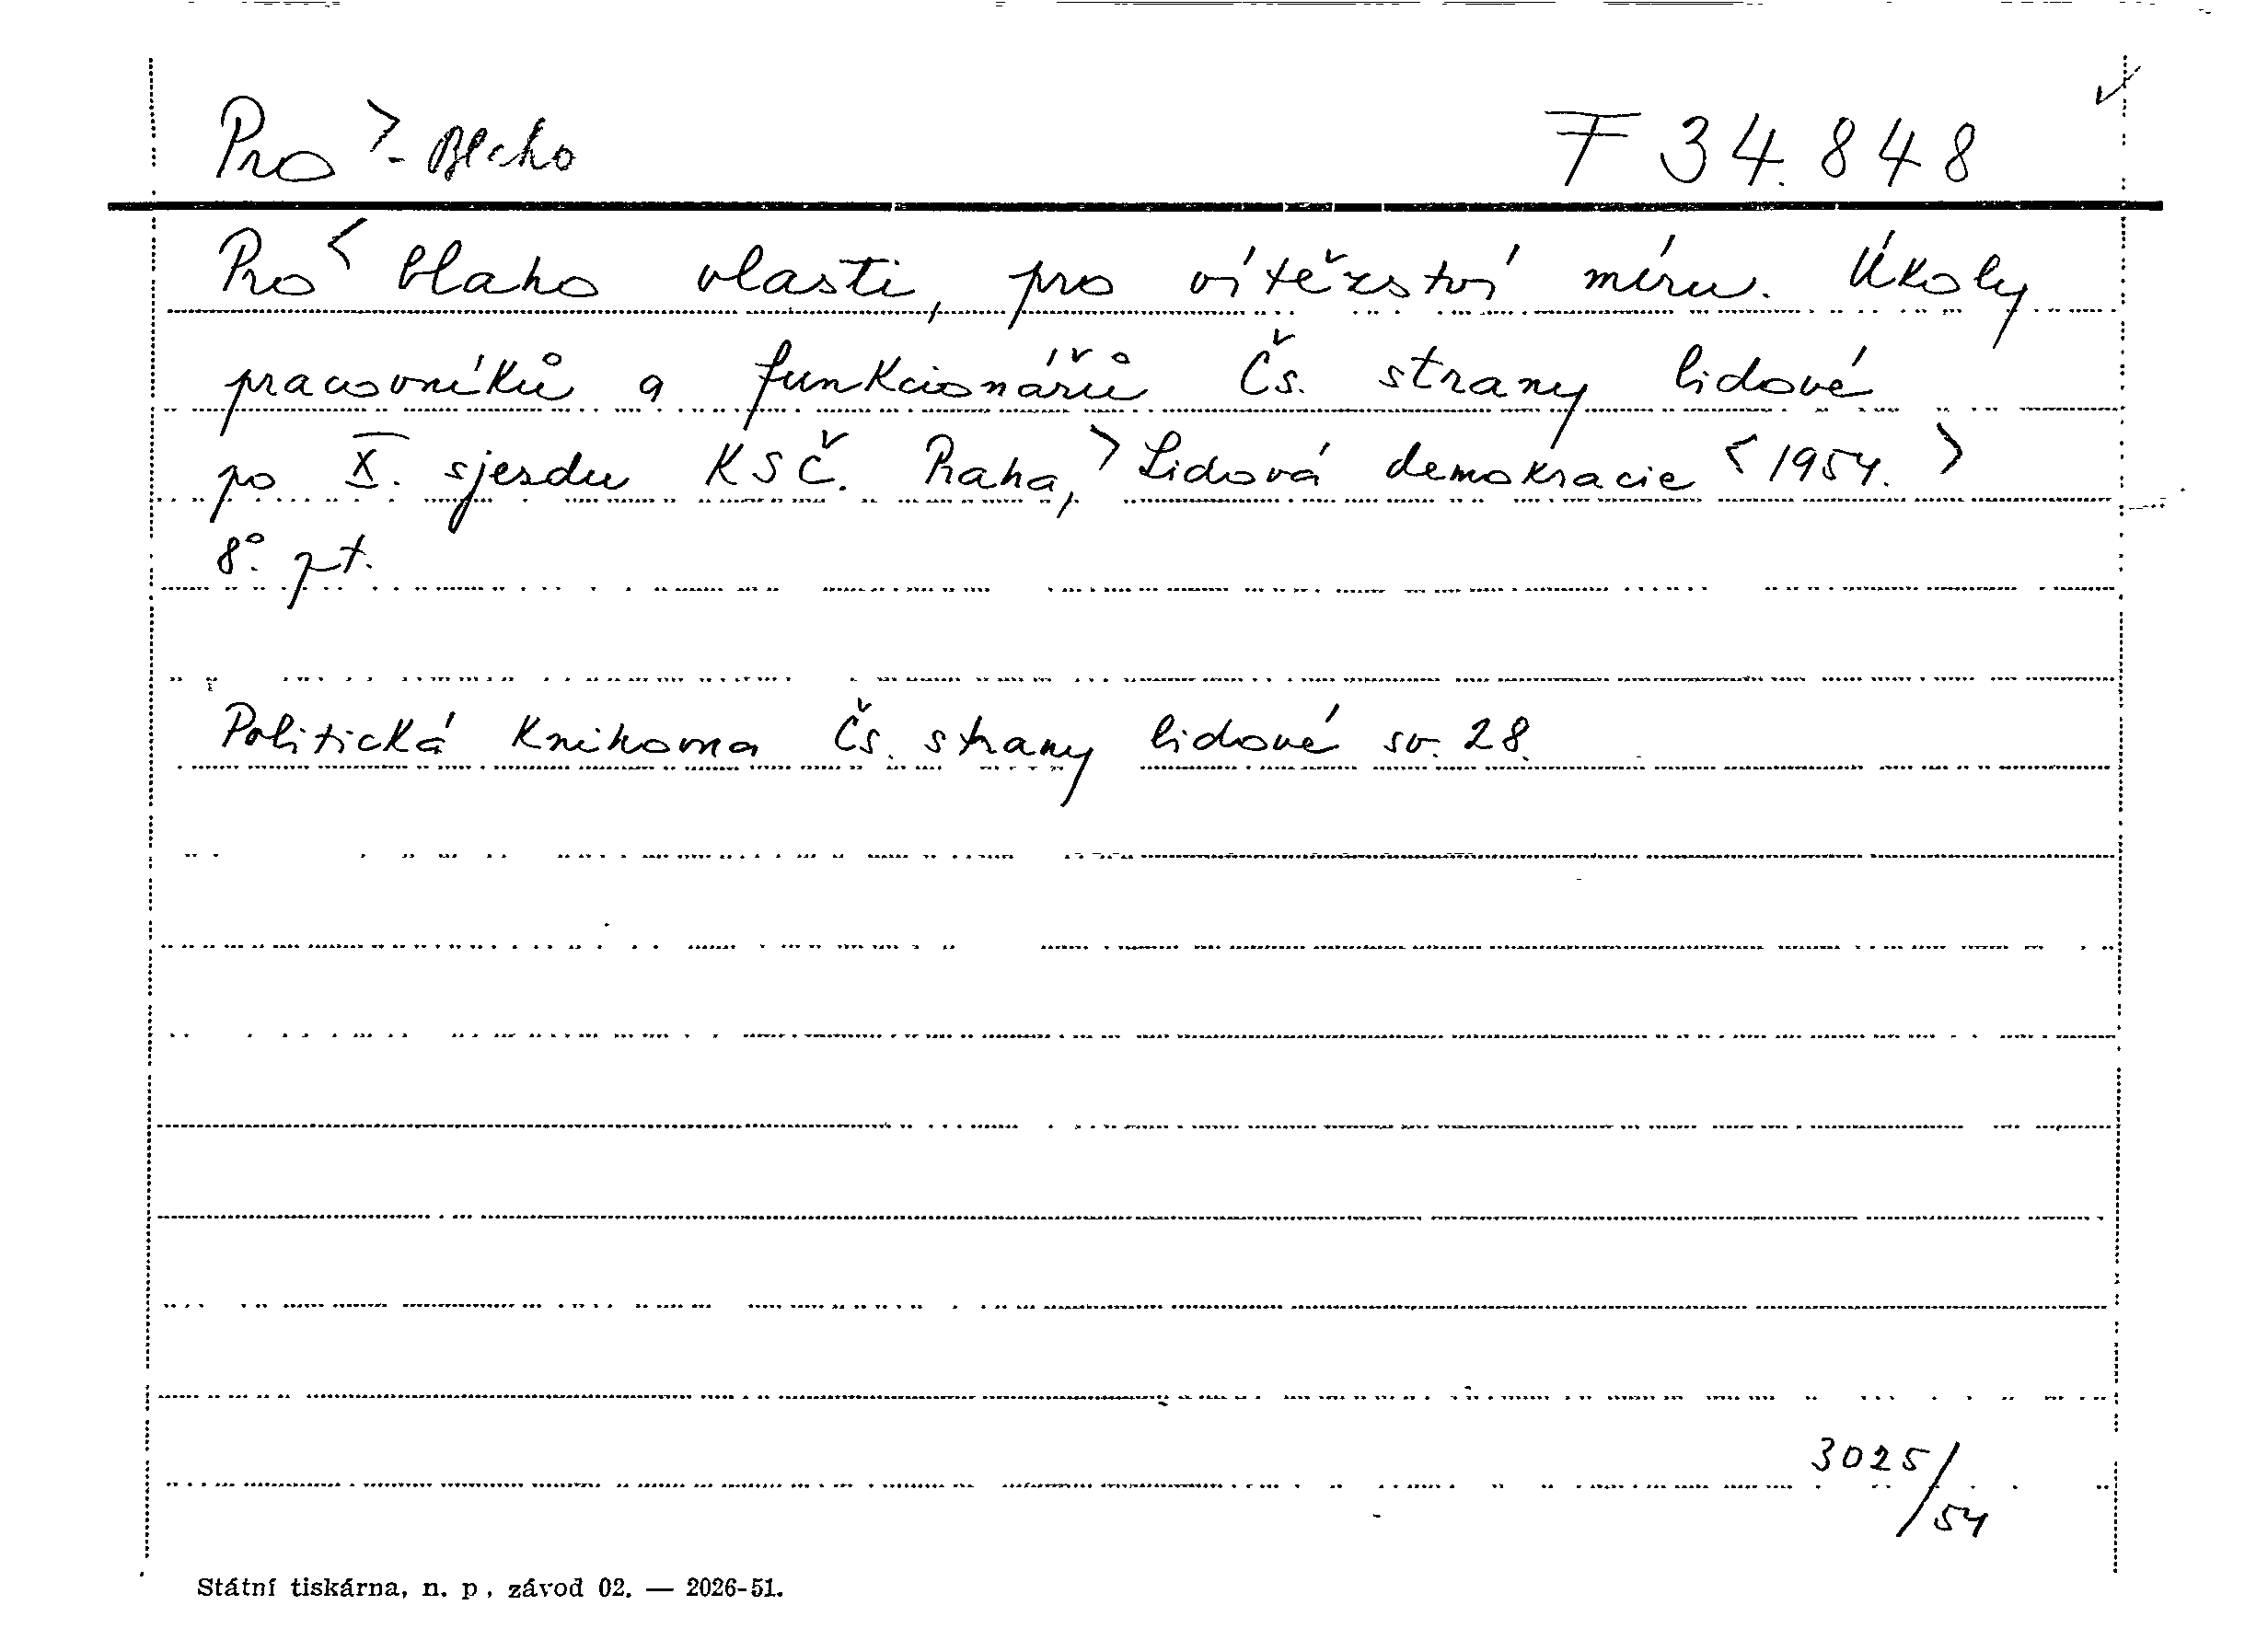 Pro > - Blaho F 34.848
Pro < blaho vlasti, pro vítězství míru. Úkoly
pracovníků a funkcionářů Čs. strany lidové
po X. sjezdu KSČ. Praha, > Lidová demokracie < 1954. >
8°. pt.
Politická knihovna Čs. strany lidové sv. 28.
3025/54
Státní tiskárna, n. p., závod 02. — 2026-51.